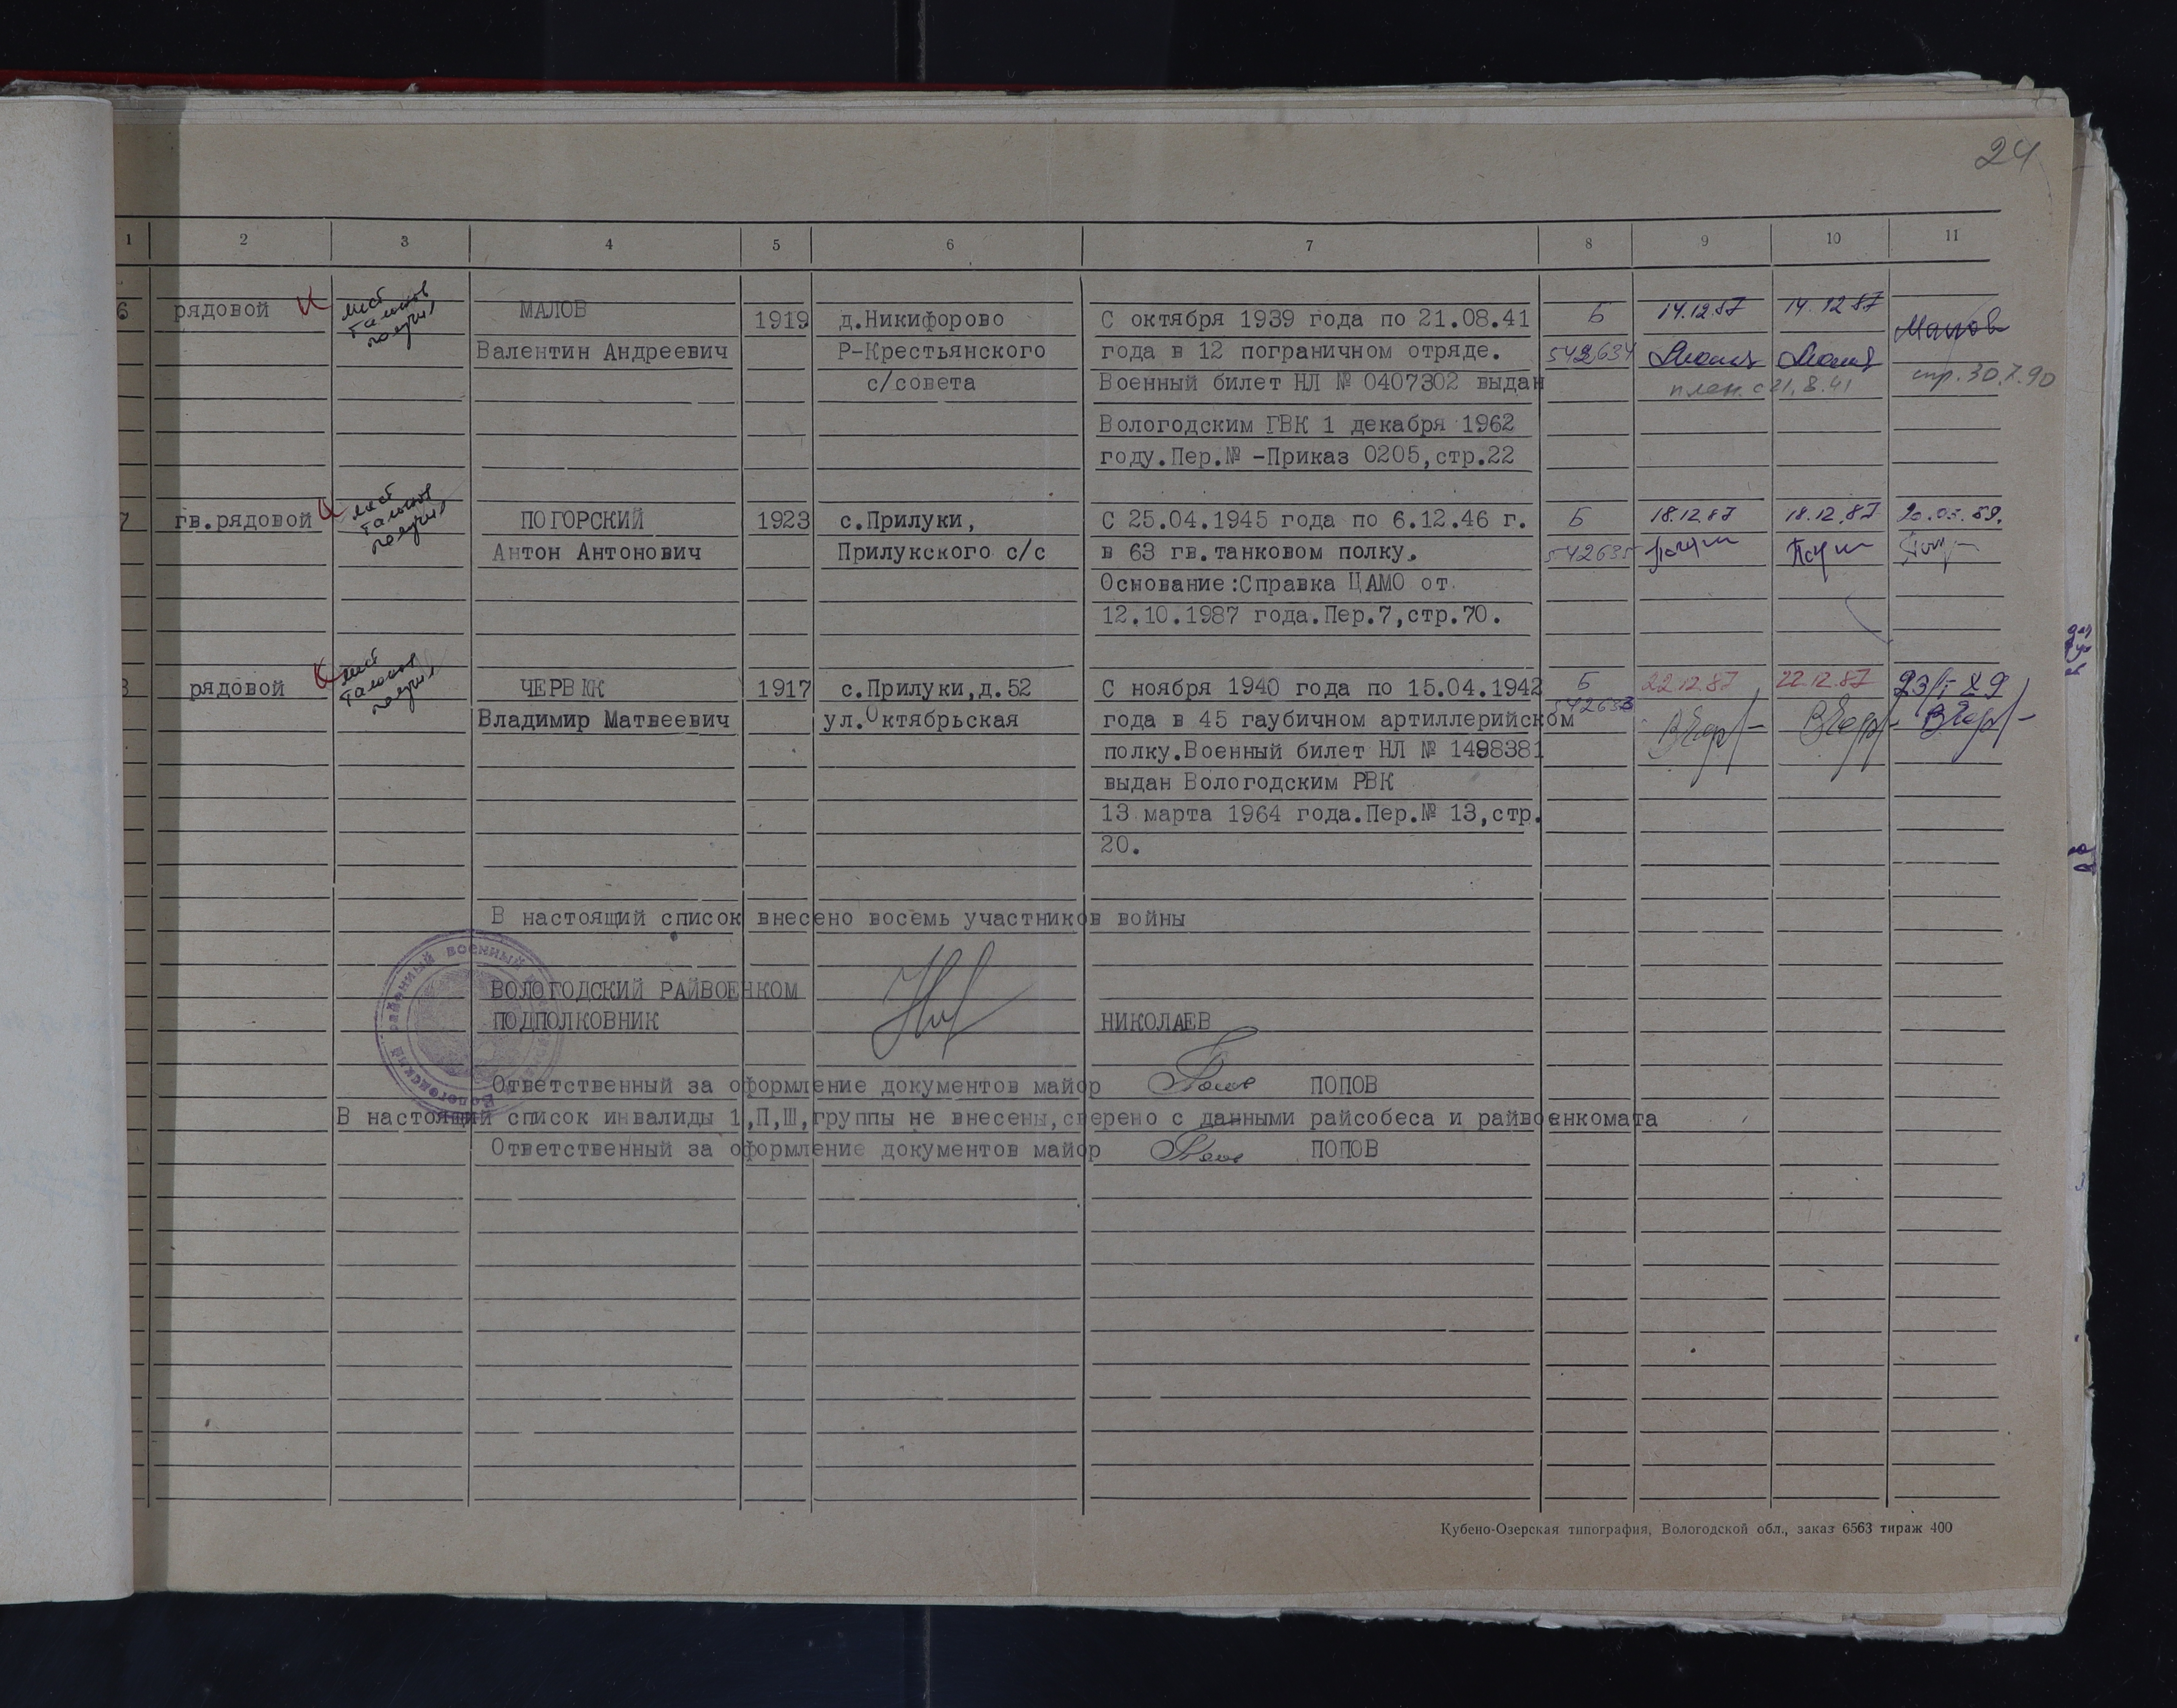 24
1 2 3 4 5 6 7 8 9 10 11
6 рядовой лист талонов получил МАЛОВ 1919 д.Никифорово С октября 1939 года по 21.08.41 Б 14.12.87 14.12.87 Малов
Валентин Андреевич Р-Крестьянского года в 12 пограничном отряде. 542634
с/совета Военный билет НЛ № 0407302 выдан плен. с 21.8.41 стр. 30.7.90
Вологодским ГВК 1 декабря 1962
году.Пер.№ -Приказ 0205,стр.22
7 гв.рядовой лист талонов получил ПОГОРСКИЙ 1923 с.Прилуки, С 25.04.1945 года по 6.12.46 г. Б 18.12.87 18.12.87 20.03.89.
Антон Антонович Прилукского с/с в 63 гв.танковом полку. 542635
Основание:Справка ЦАМО от
12.10.1987 года.Пер.7,стр.70.
8 рядовой лист талонов получил ЧЕРВЯК 1917 с.Прилуки,д.52 С ноября 1940 года по 15.04.1942 Б 22.12.87 22.12.87
Владимир Матвеевич ул.Октябрьская года в 45 гаубичном артиллерийском
полку.Военный билет НЛ № 1498381
выдан Вологодским РВК
13 марта 1964 года.Пер.№ 13,стр.
20.
В настоящий список внесено восемь участников войны
ВОЛОГОДСКИЙ РАЙВОЕНКОМ
ПОДПОЛКОВНИК НИКОЛАЕВ
Ответственный за оформление документов майор ПОПОВ
В настоящий список инвалиды 1,П,Ш,группы не внесены,сверено с данными райсобеса и райвоенкомата
Ответственный за оформление документов майор ПОПОВ
Вологодский районный военный
Кубено-Озерская типография, Вологодской обл., заказ 6563 тираж 400